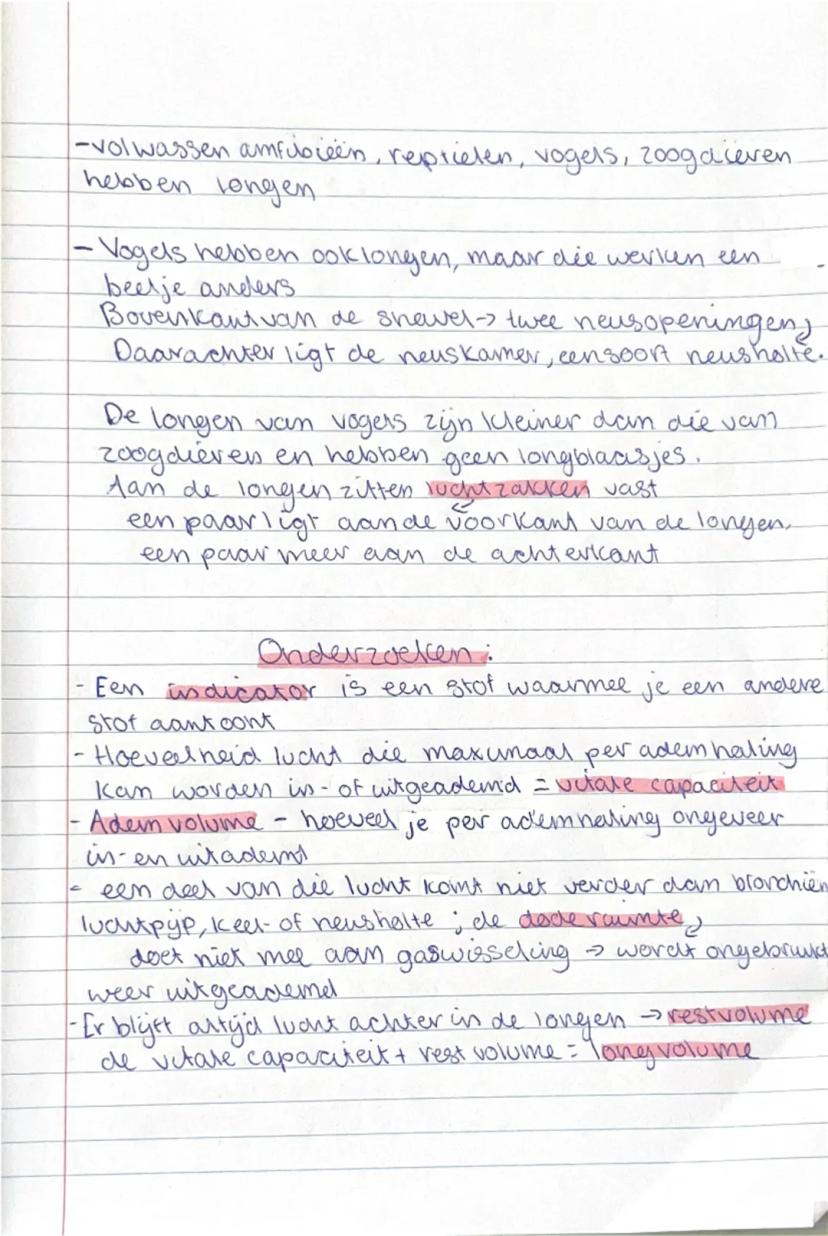 -volwassen amfibieën, reptielen, vogels, zoogdieren
hebben longen
- Vogels hebben ook longen, maar die werken een
beetje anders
Bovenkant van de snavel → twee neusopeningen,
Daarachter ligt de neuskamer, een soort neusholte.
De longen van vogels zijn kleiner dan die van
zoogdieren en hebben geen longblaasjes.
Aan de longen zitten luchtzakken vast
een paar ligt aan de voorkant van de longen,
een paar meer aan de achterkant
Onderzoeken:
- Een indicator is een stof waarmee je een andere
stof aantoont
- Hoeveelheid lucht die maximaal per ademhaling
kan worden in- of uitgeademd = vitale capaciteit
- Adem volume - hoeveel je per ademhaling ongeveer
in- en uitademt
- een deel van die lucht komt niet verder dan bronchiën
luchtpijp, keel- of neusholte ; de dode ruimte
doet niet mee aan gaswisseling → wordt ongebruikt
weer uitgeademd
- Er blijft altijd lucht achter in de longen → restvolume
de vitale capaciteit + rest volume = longvolume